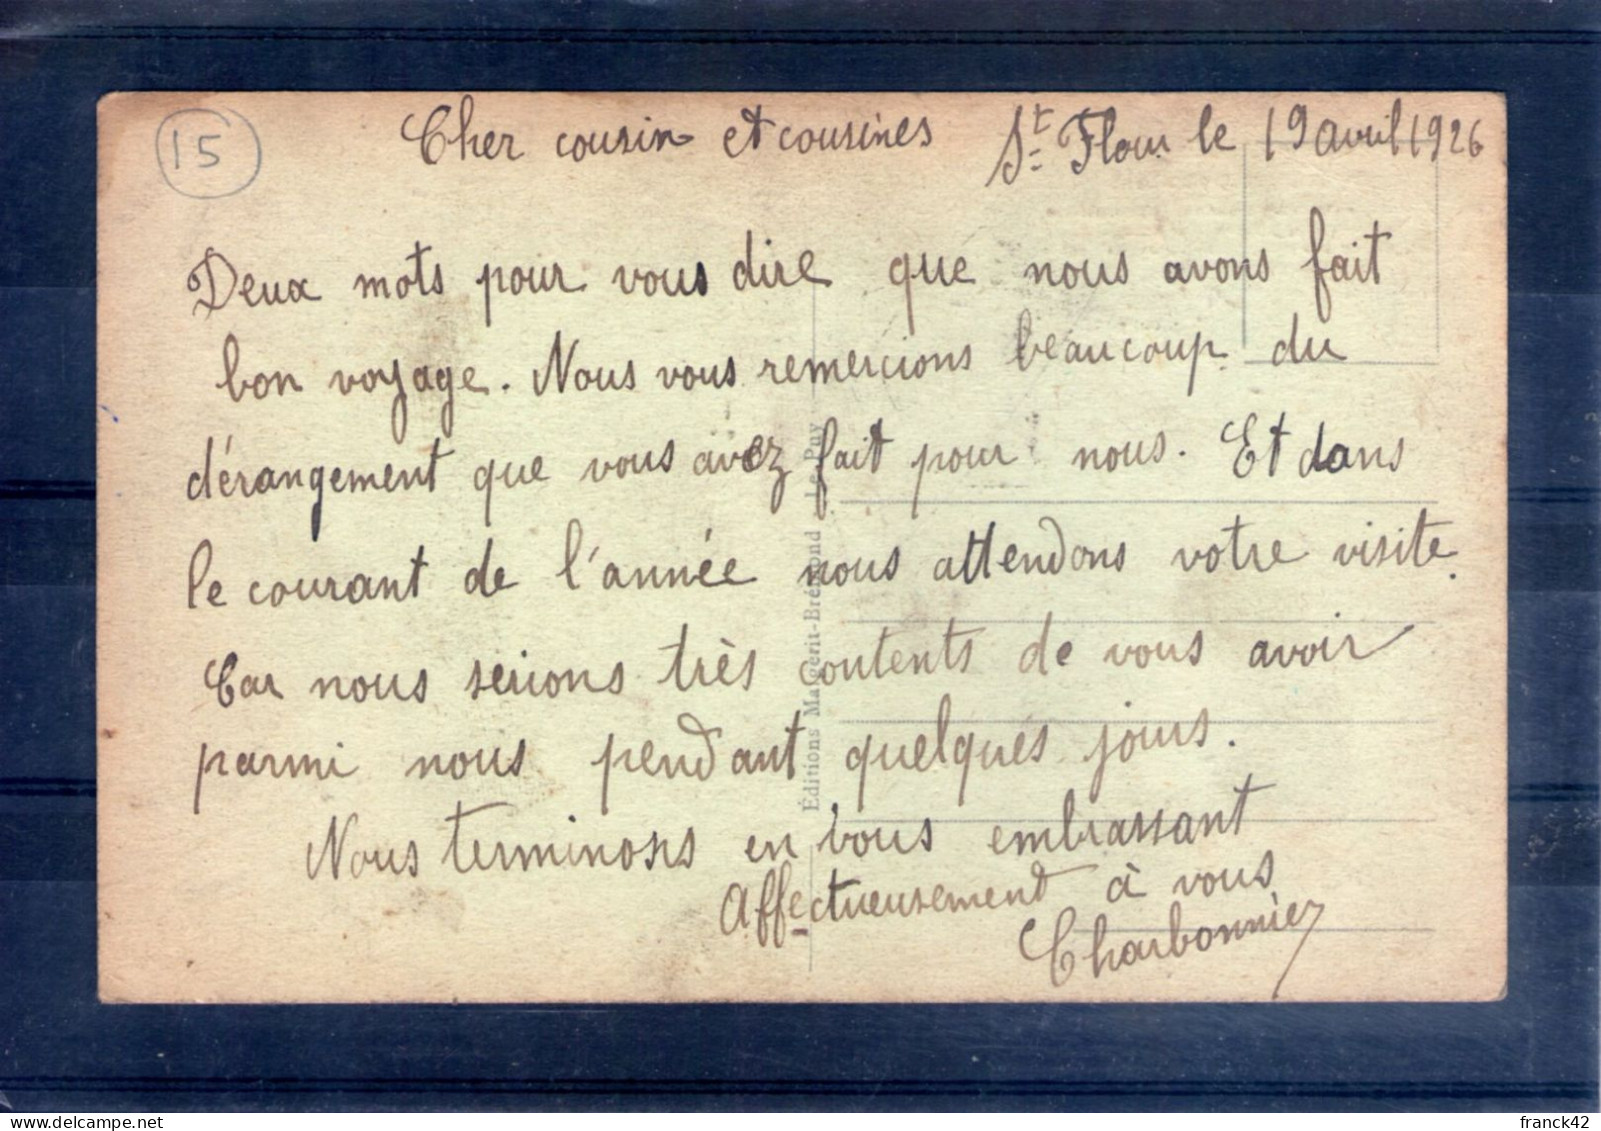 15
Cher cousin et cousines St Flour le 19 avril 1926
Deux mots pour vous dire que nous avons fait
bon voyage. Nous vous remercions beaucoup du
dérangement que vous avez fait pour nous. Et dans
le courant de l'année nous attendons votre visite.
Car nous serions très contents de vous avoir
parmi nous pendant quelques jours.
Nous terminons en vous embrassant
Affectueusement à vous
Charbonnier
Éditions Margerit-Brémond - Le Puy
franck42